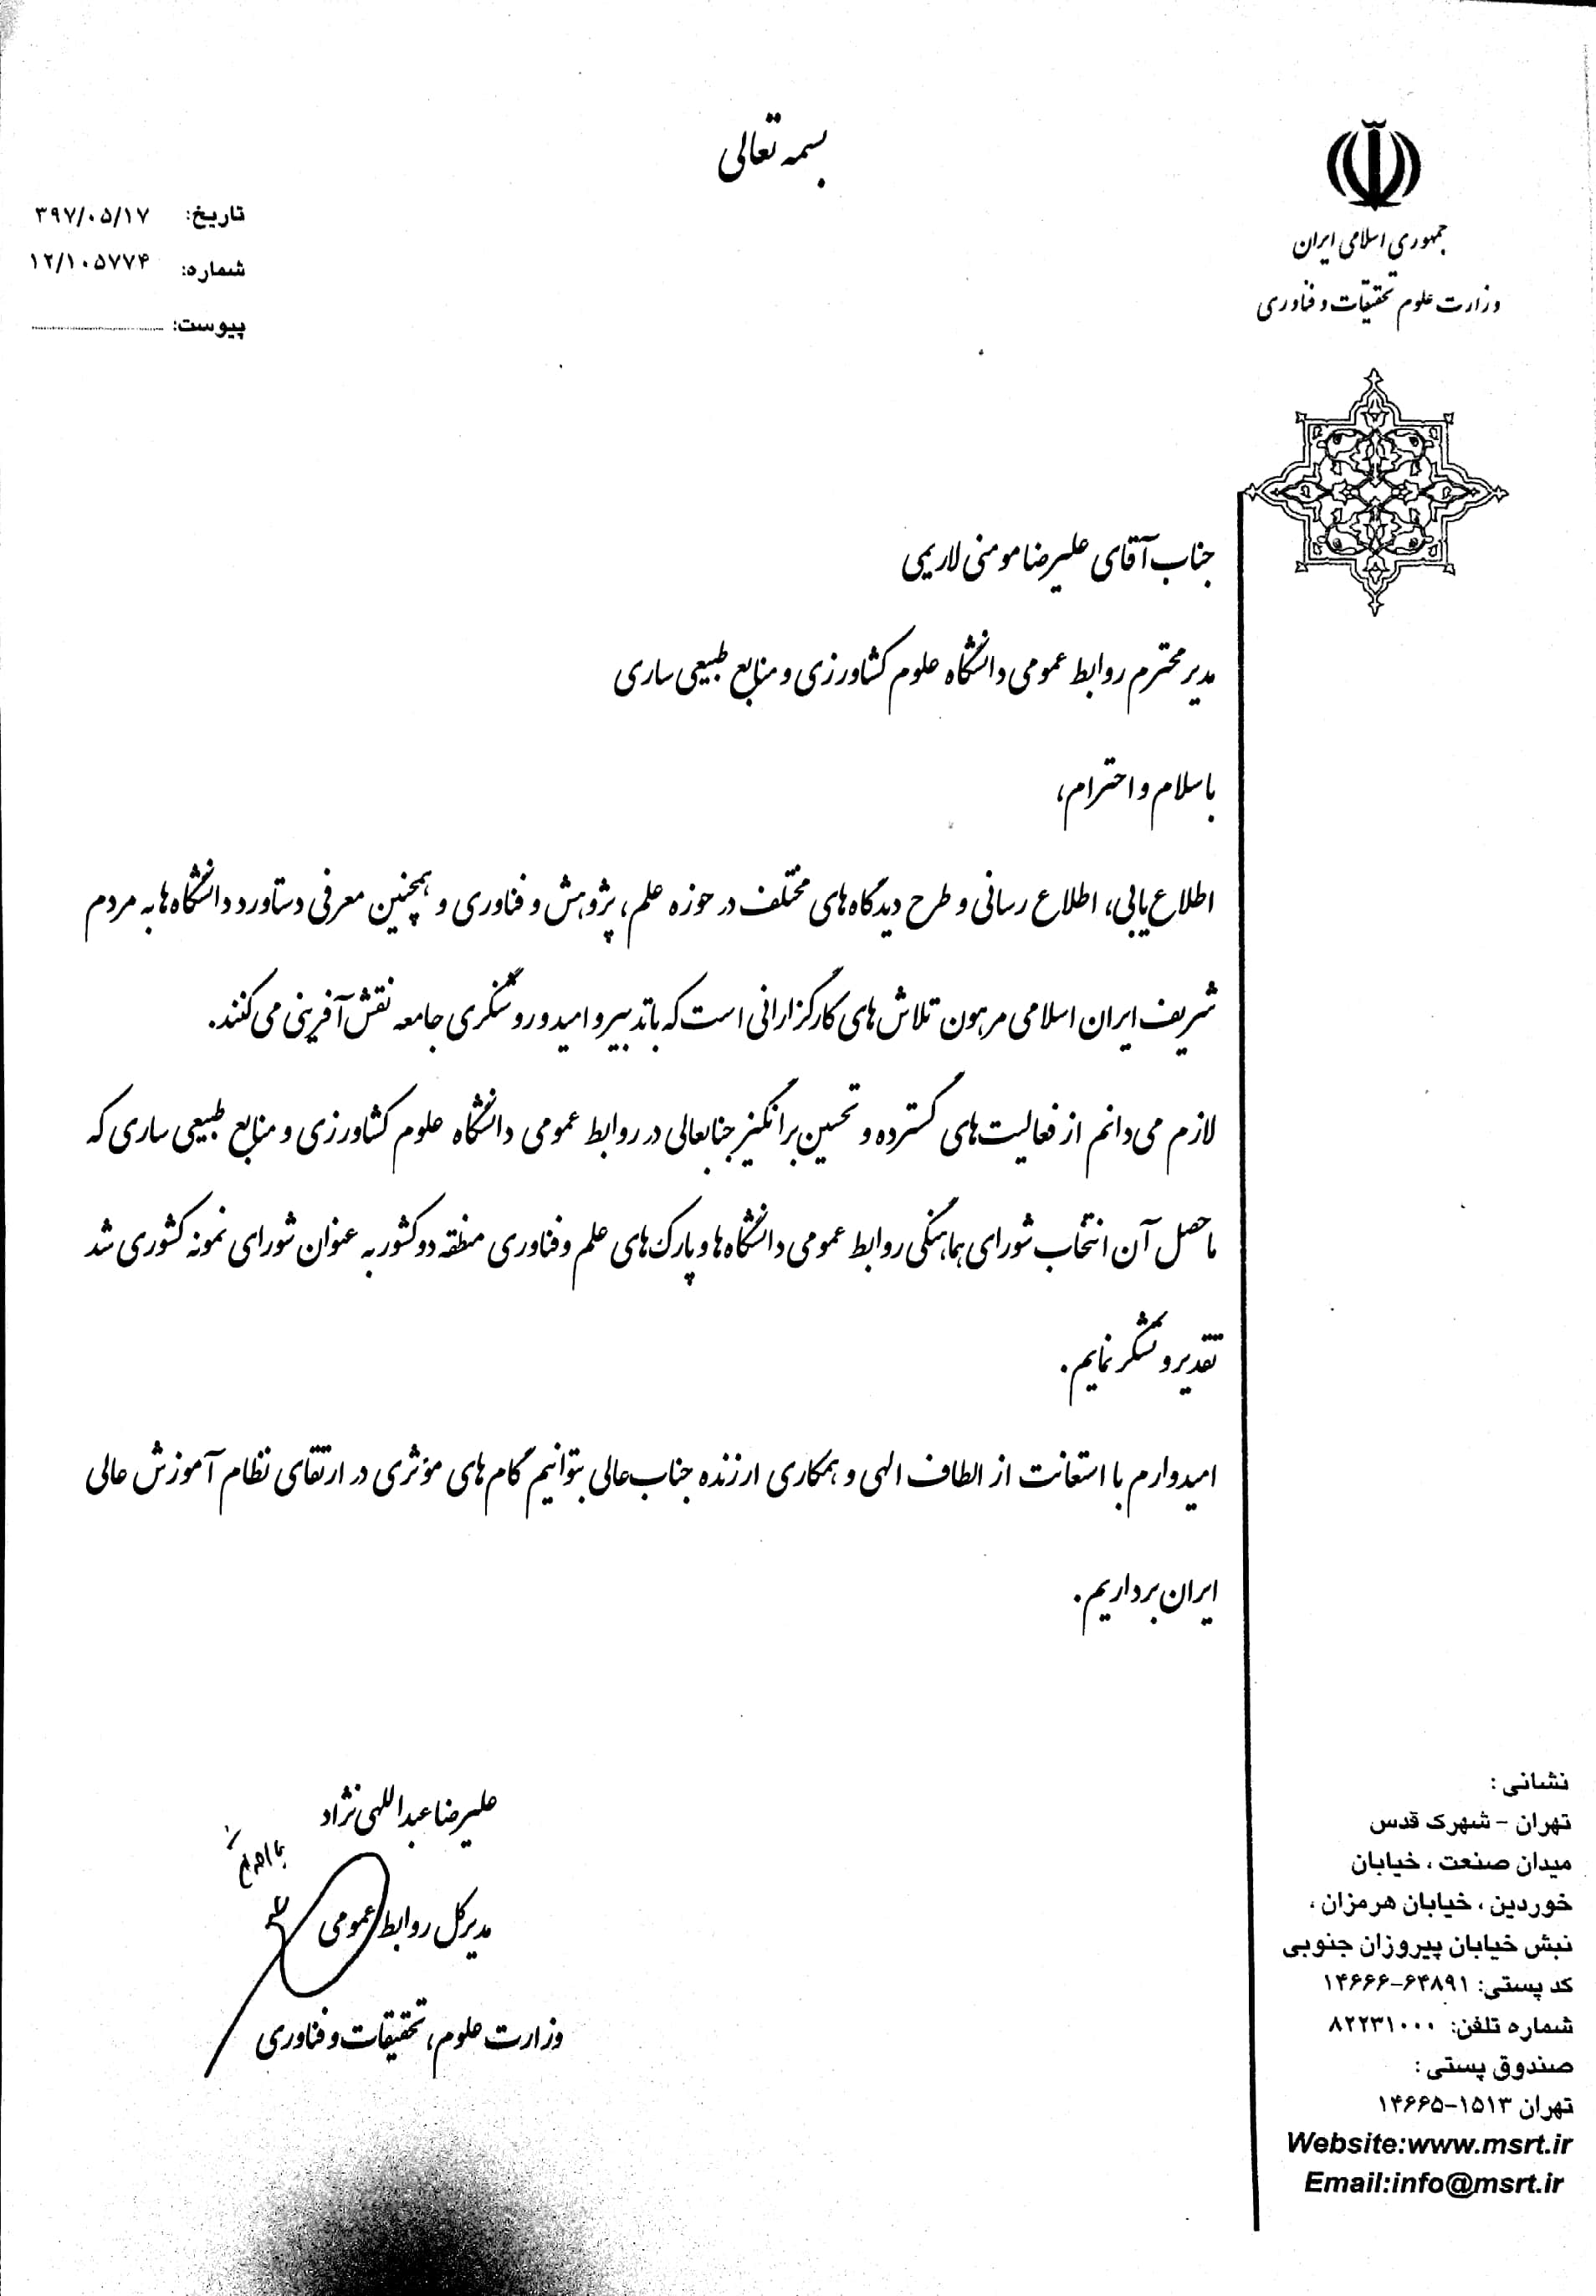 بسمه تعالی
جمهوری اسلامی ایران
وزارت علوم تحقیقات و فناوری
تاریخ: ۳۹۷/۰۵/۱۷
شماره: ۱۲/۱۰۵۷۷۴
پیوست:
جناب آقای علیرضا مومنی لاریمی
مدیر محترم روابط عمومی دانشگاه علوم کشاورزی و منابع طبیعی ساری
با سلام و احترام،
اطلاع‌یابی، اطلاع رسانی و طرح دیدگاه‌های مختلف در حوزه علم، پژوهش و فناوری و همچنین معرفی دستاورد دانشگاه‌ها به مردم
شریف ایران اسلامی مرهون تلاش‌های کارگزارانی است که با تدبیر و امید و روشنگری جامعه نقش آفرینی می‌کنند.
لازم می‌دانم از فعالیت‌های گسترده و تحسین برانگیز جنابعالی در روابط عمومی دانشگاه علوم کشاورزی و منابع طبیعی ساری که
ماحصل آن انتخاب شورای هماهنگی روابط عمومی دانشگاه‌ها و پارک‌های علم و فناوری منطقه دو کشور به عنوان شورای نمونه کشوری شد
تقدیر و تشکر نمایم.
امیدوارم با استعانت از الطاف الهی و همکاری ارزنده جناب‌عالی بتوانیم گام‌های مؤثری در ارتقای نظام آموزش عالی
ایران برداریم.
علیرضا عبداللهی نژاد
مدیرکل روابط عمومی
وزارت علوم، تحقیقات و فناوری
نشانی :
تهران - شهرک قدس
میدان صنعت ، خیابان
خوردین ، خیابان هرمزان ،
نبش خیابان پیروزان جنوبی
کد پستی: ۱۴۶۶۶-۶۴۸۹۱
شماره تلفن: ۸۲۲۳۱۰۰۰
صندوق پستی :
تهران ۱۵۱۳-۱۴۶۶۵
Website:www.msrt.ir
Email:info@msrt.ir